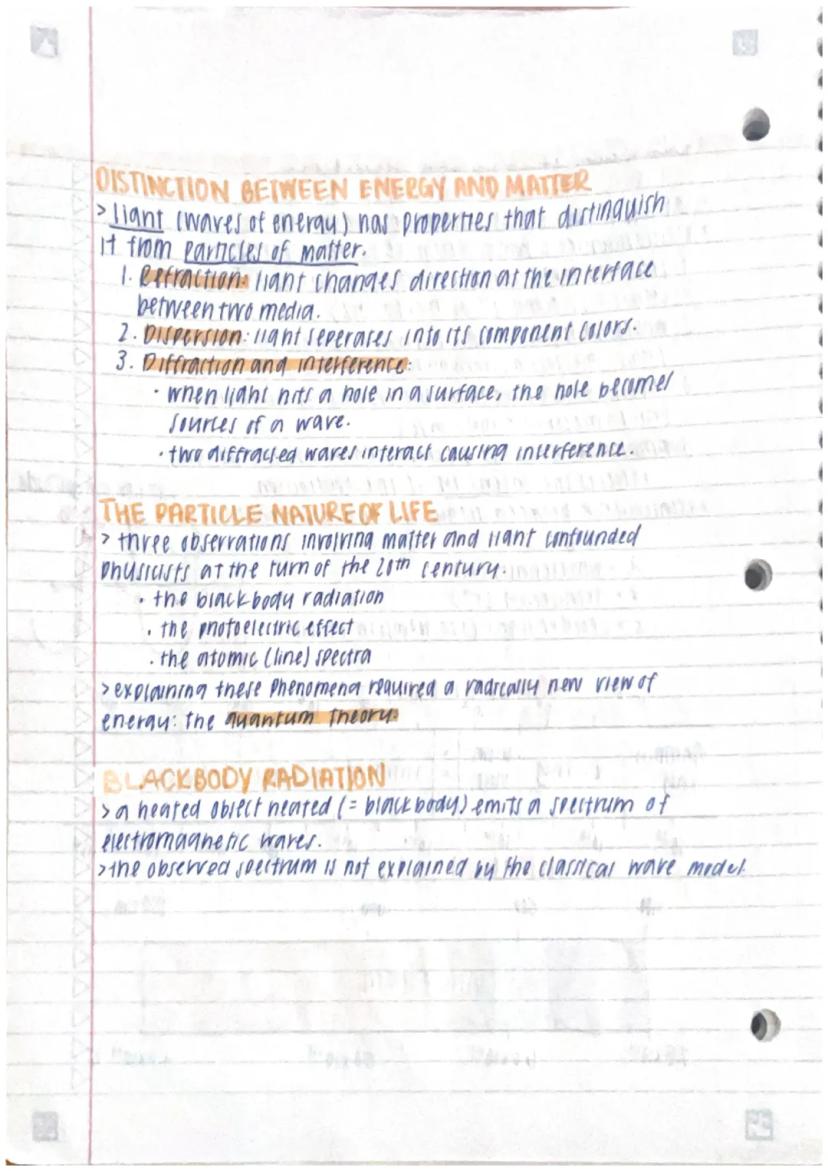 DISTINCTION BETWEEN ENERGY AND MATTER
> light (waves of energy) has properties that distinguish
it from particles of matter.
1. Refraction: light changes direction at the interface
between two media.
2. Dispersion: light seperates into its component colors.
3. Diffraction and interference:
• when light hits a hole in a surface, the hole becomes
sources of a wave.
• two diffracted waves interact causing interference.
THE PARTICLE NATURE OF LIFE
> three observations involving matter and light confounded
physicists at the turn of the 20th century:
• the blackbody radiation
• the photoelectric effect
• the atomic (line) spectra
> explaining these phenomena required a radically new view of
energy: the quantum theory.
BLACKBODY RADIATION
> a heated object heated (= blackbody) emits a spectrum of
electromagnetic waves.
> the observed spectrum is not explained by the classical wave model.